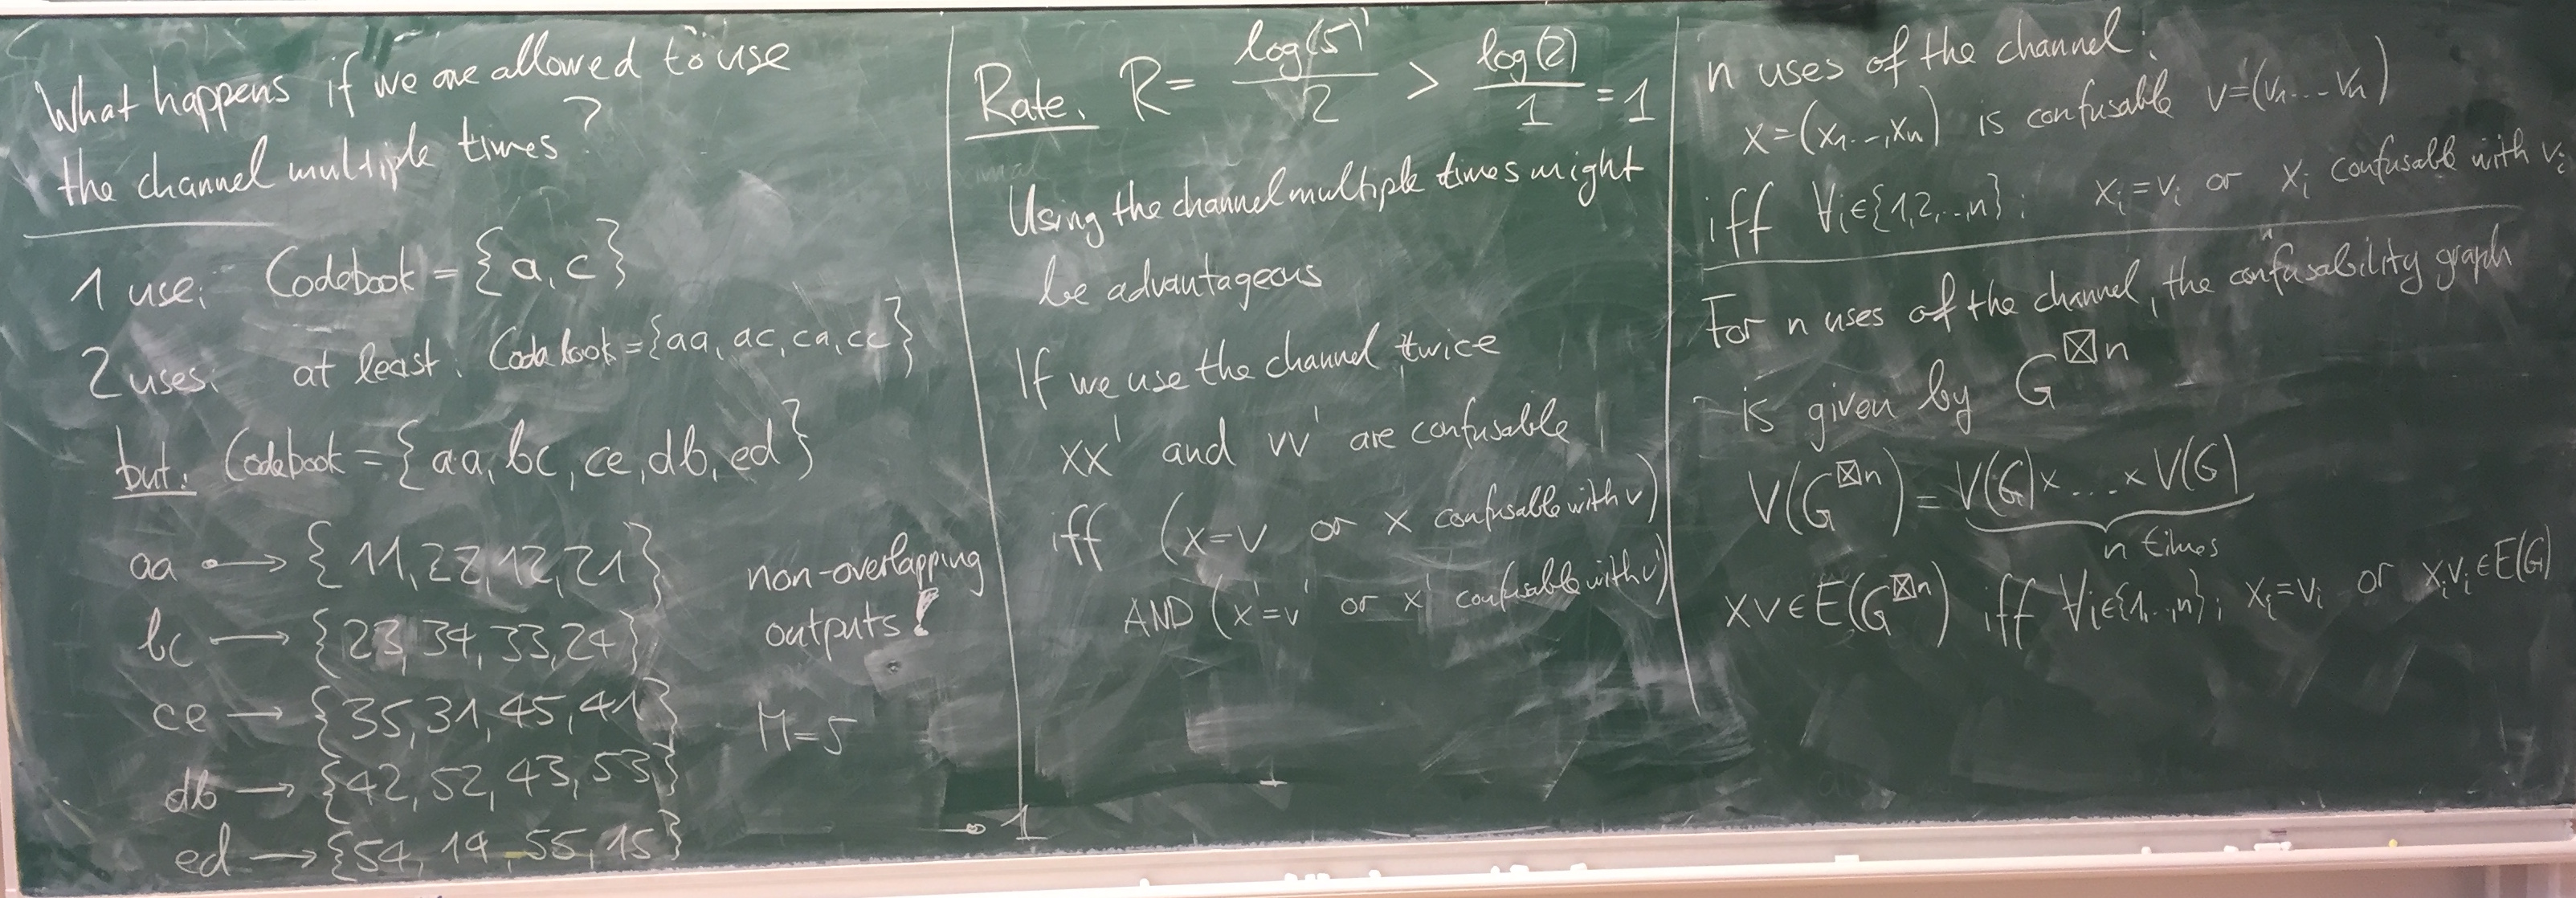 What happens if we are allowed to use
the channel multiple times?
1 use: Codebook = {a, c}
2 uses: at least: Codebook = {aa, ac, ca, cc}
but: Codebook = {aa, bc, ce, db, ed}
aa → {11, 22, 12, 21}
bc → {23, 34, 33, 24}
ce → {35, 31, 45, 41}
db → {42, 52, 43, 53}
ed → {54, 14, 55, 15}
non-overlapping
outputs!
M=5
Rate: R = log(5)/2 > log(2)/1 = 1
Using the channel multiple times might
be advantageous
If we use the channel twice
xx' and vv' are confusable
iff (x=v or x confusable with v)
AND (x'=v' or x' confusable with v')
n uses of the channel:
x=(x₁...,xₙ) is confusable v=(v₁...vₙ)
iff ∀i∈{1,2,..,n}: xᵢ=vᵢ or xᵢ confusable with vᵢ
For n uses of the channel, the confusability graph
is given by G^⊠n
V(G^⊠n) = V(G)×...×V(G)
n times
xv∈E(G^⊠n) iff ∀i∈{1..,n}; xᵢ=vᵢ or xᵢvᵢ∈E(G)